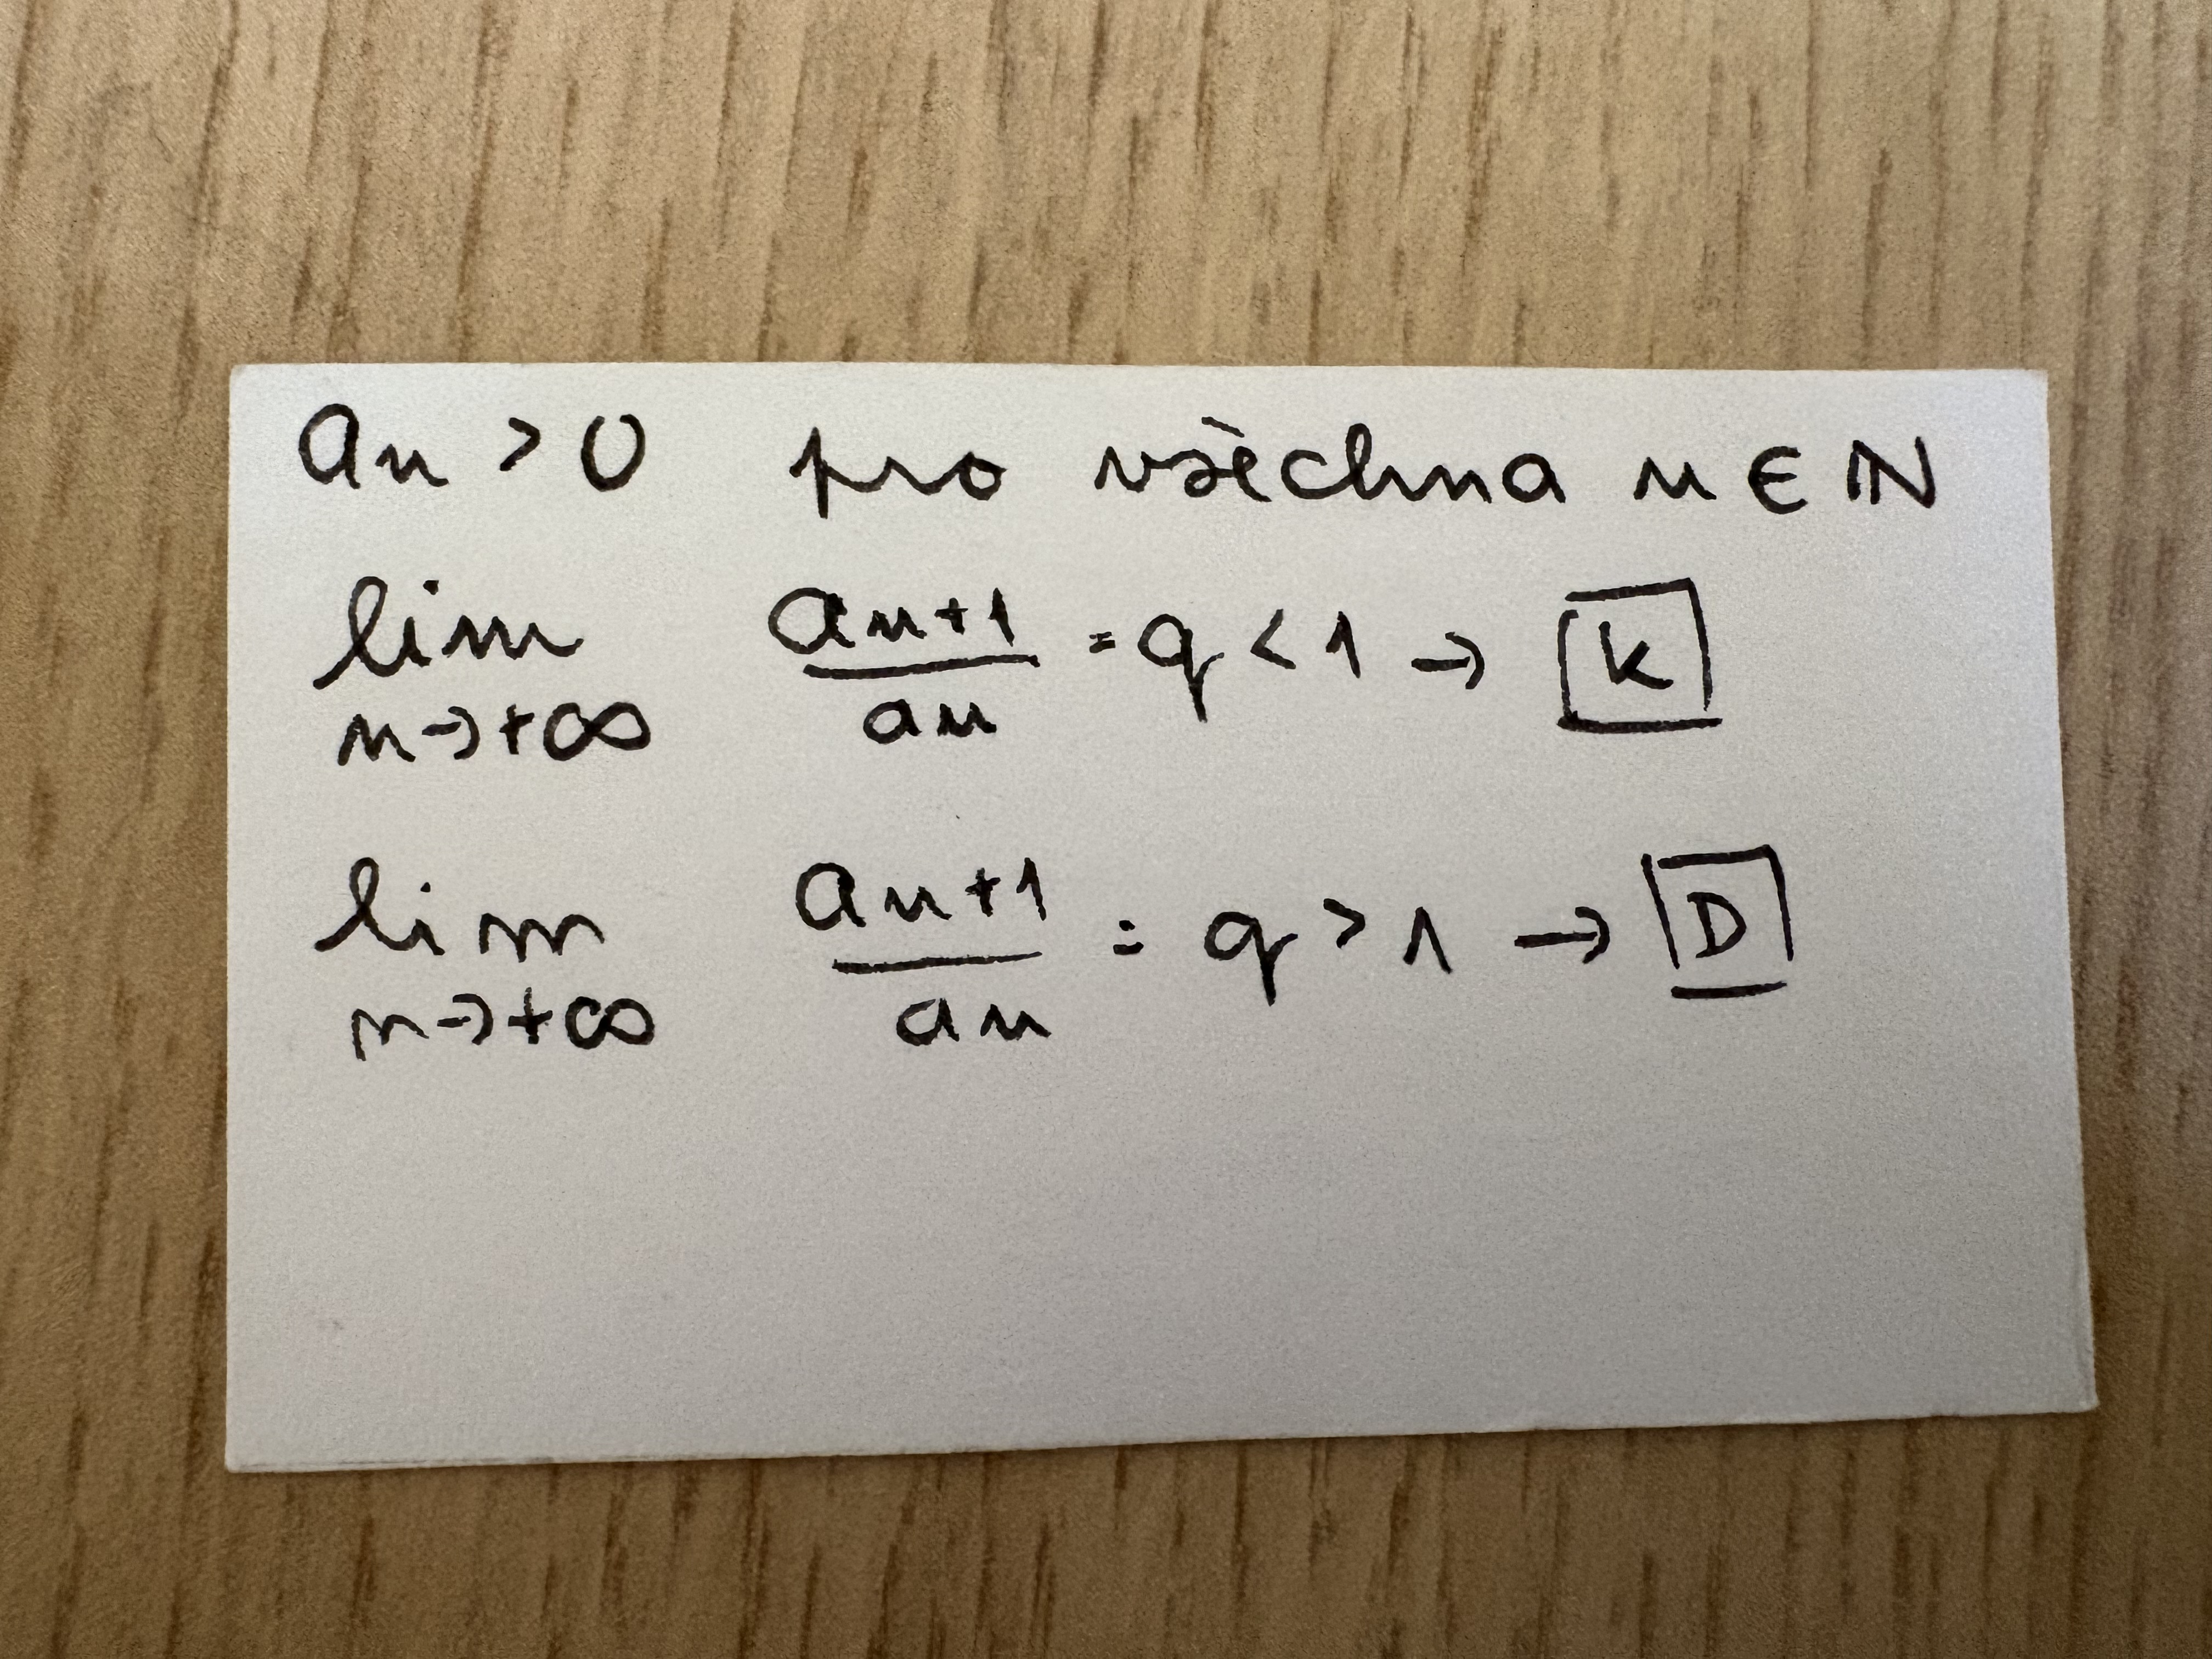 an > 0 pro všechna n ∈ ℕ
lim n→+∞ an+1/an = q < 1 → K
lim n→+∞ an+1/an = q > 1 → D